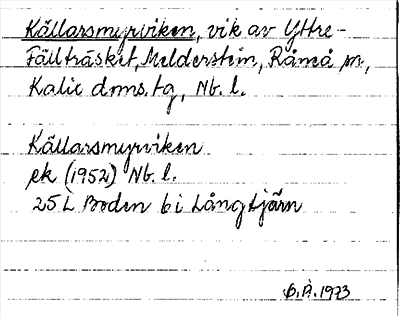 Källarsmyrviken, vik av Yttre-
Fällträsket, Melderstein, Råneå sn,
Kalix doms.tg, Nb. l.
Källarsmyrviken
ek (1952) Nb. l.
25 L Boden 6 i Långtjärn
B.Å. 1973